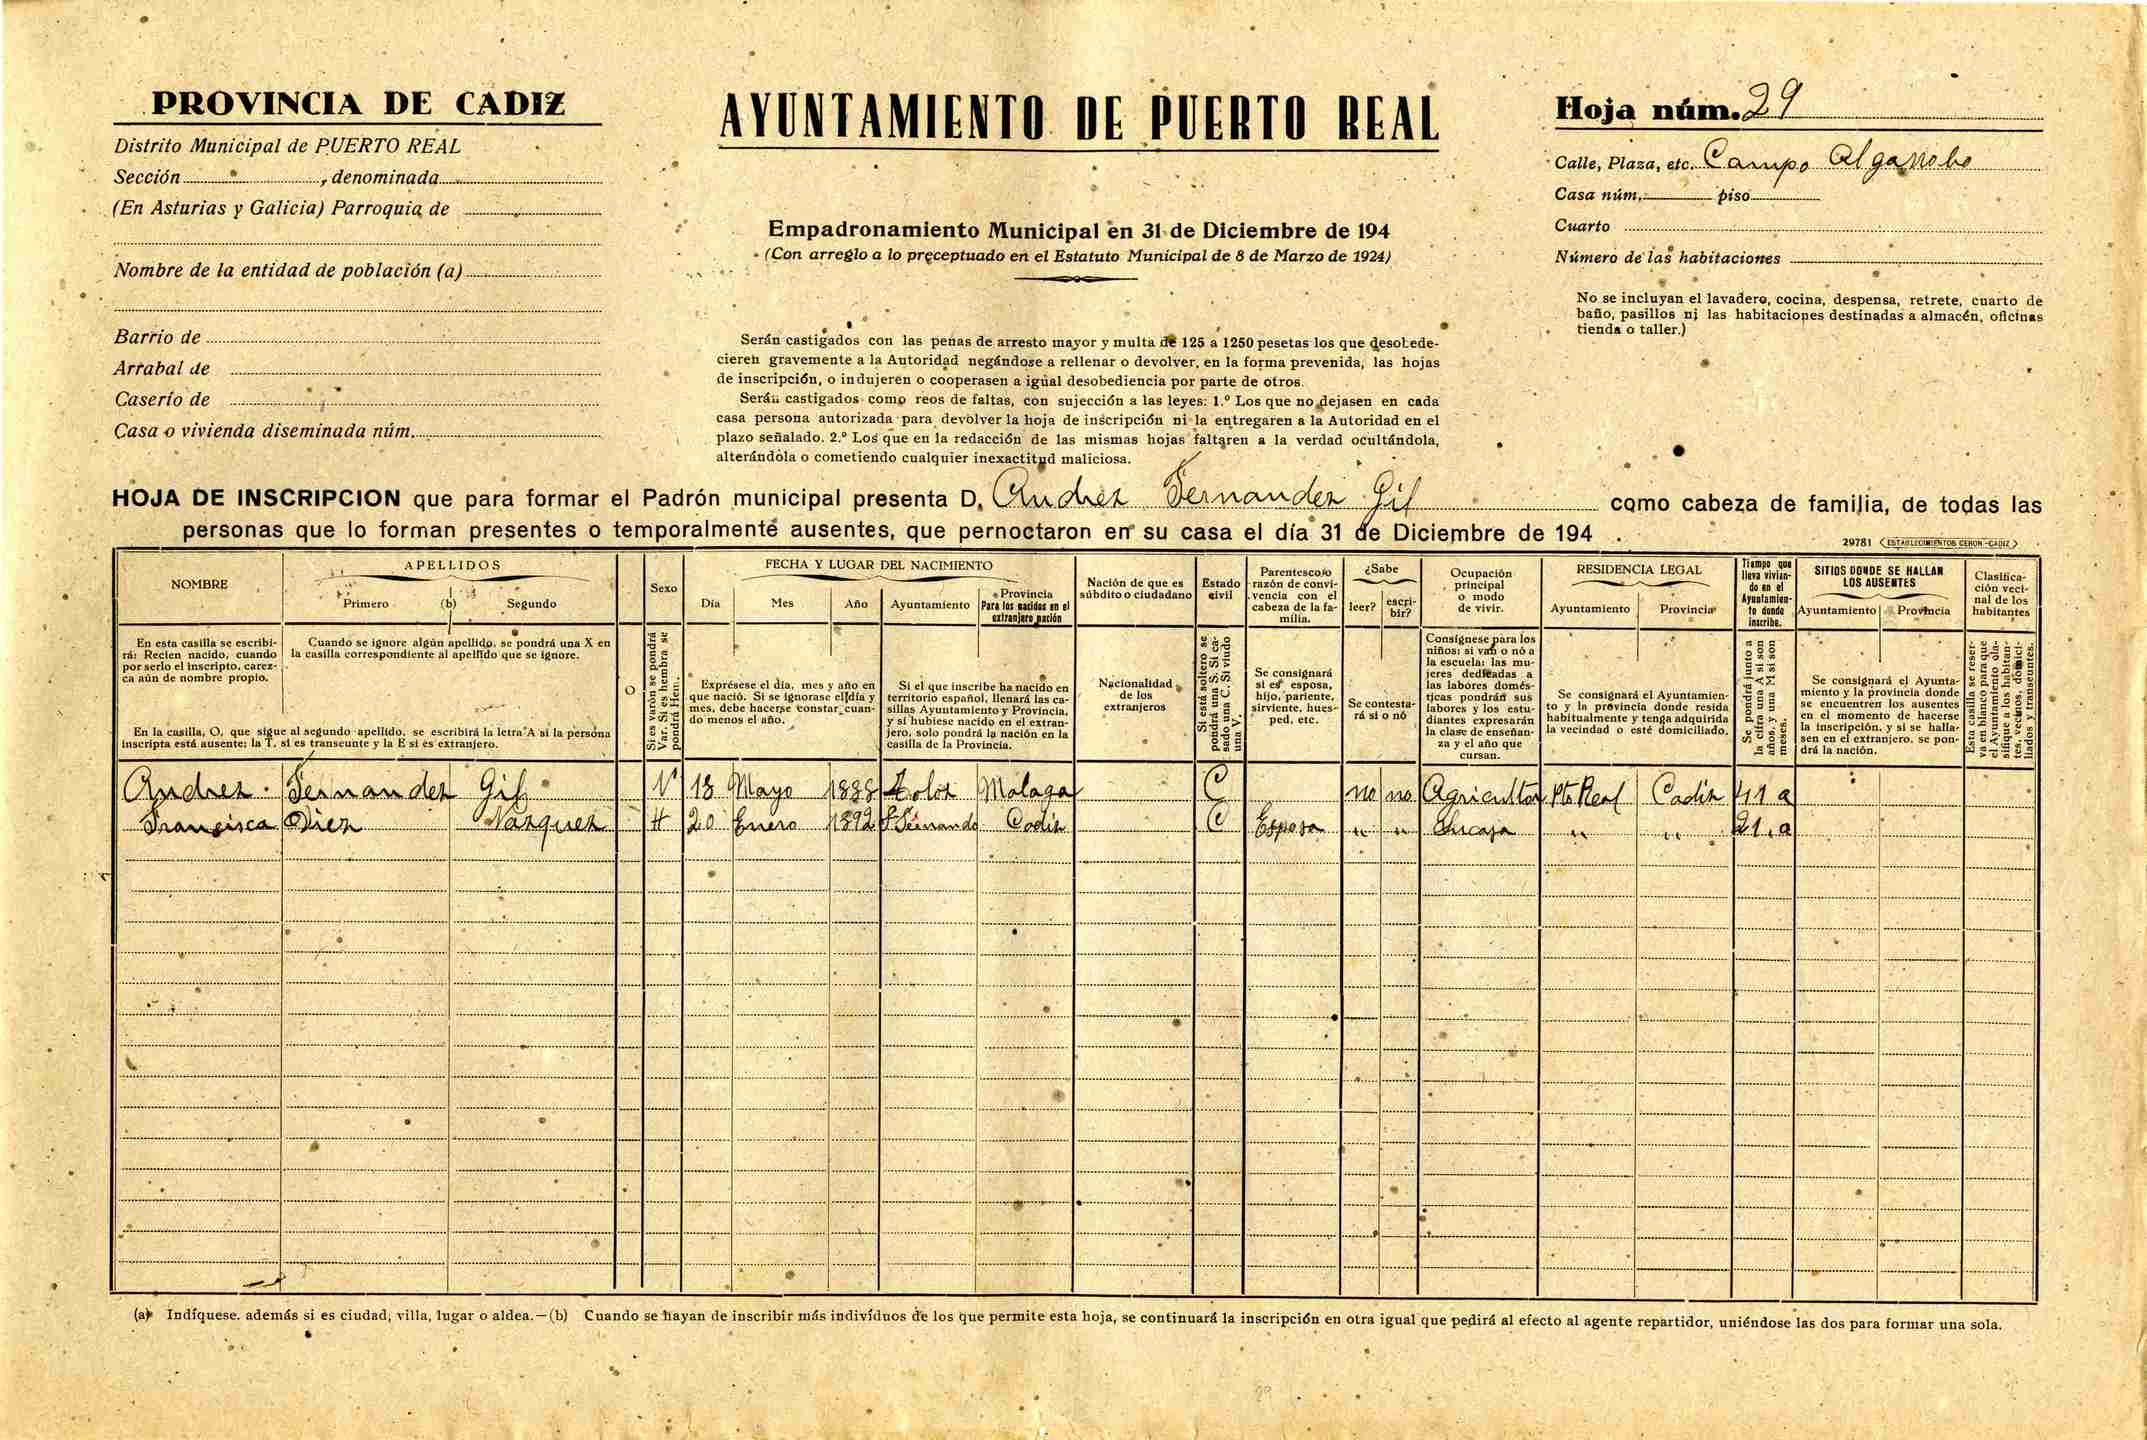 PROVINCIA DE CADIZ
Distrito Municipal de PUERTO REAL
Sección , denominada
(En Asturias y Galicia) Parroquia de
Nombre de la entidad de población (a)
Barrio de
Arrabal de
Caserío de
Casa o vivienda diseminada núm.
AYUNTAMIENTO DE PUERTO REAL
Empadronamiento Municipal en 31 de Diciembre de 194
(Con arreglo a lo preceptuado en el Estatuto Municipal de 8 de Marzo de 1924)
Serán castigados con las penas de arresto mayor y multa de 125 a 1250 pesetas los que desobede-
cieren gravemente a la Autoridad negándose a rellenar o devolver, en la forma prevenida, las hojas
de inscripción, o indujeren o cooperasen a igual desobediencia por parte de otros.
Serán castigados como reos de faltas, con sujección a las leyes: 1.º Los que no dejasen en cada
casa persona autorizada para devolver la hoja de inscripción ni la entregaren a la Autoridad en el
plazo señalado. 2.º Los que en la redacción de las mismas hojas faltaren a la verdad ocultándola,
alterándola o cometiendo cualquier inexactitud maliciosa.
Hoja núm. 29
Calle, Plaza, etc. Campo Algarrobo
Casa núm. piso
Cuarto
Número de las habitaciones
No se incluyan el lavadero, cocina, despensa, retrete, cuarto de
baño, pasillos ni las habitaciones destinadas a almacén, oficinas
tienda o taller.)
HOJA DE INSCRIPCION que para formar el Padrón municipal presenta D. Andrez Fernandez Gil como cabeza de familia, de todas las
personas que lo forman presentes o temporalmente ausentes, que pernoctaron en su casa el día 31 de Diciembre de 194 .
29781 ESTABLECIMIENTOS CERON-CADIZ
NOMBRE
APELLIDOS
Primero (b) Segundo
Sexo
FECHA Y LUGAR DEL NACIMIENTO
Día Mes Año Ayuntamiento
Provincia
Para los nacidos en el
extranjero nación
Nación de que es
súbdito o ciudadano
Estado
civil
Parentesco o
razón de convi-
vencia con el
cabeza de la fa-
milia.
¿Sabe
leer? escri-
bir?
Ocupación
principal
o modo
de vivir.
RESIDENCIA LEGAL
Ayuntamiento Provincia
Tiempo que
lleva vivien-
do en el
Ayuntamien-
to donde
inscribe.
SITIOS DONDE SE HALLAN
LOS AUSENTES
Ayuntamiento Provincia
Clasifica-
ción veci-
nal de los
habitantes
En esta casilla se escribi-
rá: Recien nacido, cuando
por serlo el inscripto, carez-
ca aún de nombre propio.
Cuando se ignore algún apellido, se pondrá una X en
la casilla correspondiente al apellido que se ignore.
En la casilla, O, que sigue al segundo apellido, se escribirá la letra A si la persona
inscripta está ausente; la T, si es transeunte y la E si es extranjero.
O
Si es varón se pondrá
Var. Si es hembra se
pondrá Hem.
Exprésese el día, mes y año en
que nació. Si se ignorase el día y
mes, debe hacerse constar cuan-
do menos el año.
Si el que inscribe ha nacido en
territorio español, llenará las ca-
sillas Ayuntamiento y Provincia,
y si hubiese nacido en el extran-
jero, solo pondrá la nación en la
casilla de la Provincia.
Nacionalidad
de los
extranjeros
Si está soltero se
pondrá una S. Si ca-
sado una C. Si viudo
una V.
Se consignará
si es esposa,
hijo, pariente,
sirviente, hues-
ped, etc.
Se contesta-
rá si o nó
Consígnese para los
niños: si van o nó a
la escuela: las mu-
jeres dedicadas a
las labores domés-
ticas pondrán sus
labores y los estu-
diantes expresarán
la clase de enseñan-
za y el año que
cursan.
Se consignará el Ayuntamien-
to y la provincia donde resida
habitualmente y tenga adquirida
la vecindad o esté domiciliado.
Se pondrá junto a
la cifra una A si son
años, y una M si son
meses.
Se consignará el Ayunta-
miento y la provincia donde
se encuentren los ausentes
en el momento de hacerse
la inscripción, y si se halla-
sen en el extranjero, se pon-
drá la nación.
Esta casilla se reser-
va en blanco para que
el Ayuntamiento cla-
sifique a los habitan-
tes, vecinos, domici-
liados y transeuntes.
Andrez Fernandez Gil V 13 Mayo 1888 Tolox Malaga C no no Agricultor Pto Real Cadiz 41 a
Francisca Diez Vazquez H 20 Enero 1892 S. Fernando Cadiz C Esposa " " Su casa " " 21. a
(a) Indíquese, además si es ciudad, villa, lugar o aldea.—(b) Cuando se hayan de inscribir más indivíduos de los que permite esta hoja, se continuará la inscripción en otra igual que pedirá al efecto al agente repartidor, uniéndose las dos para formar una sola.